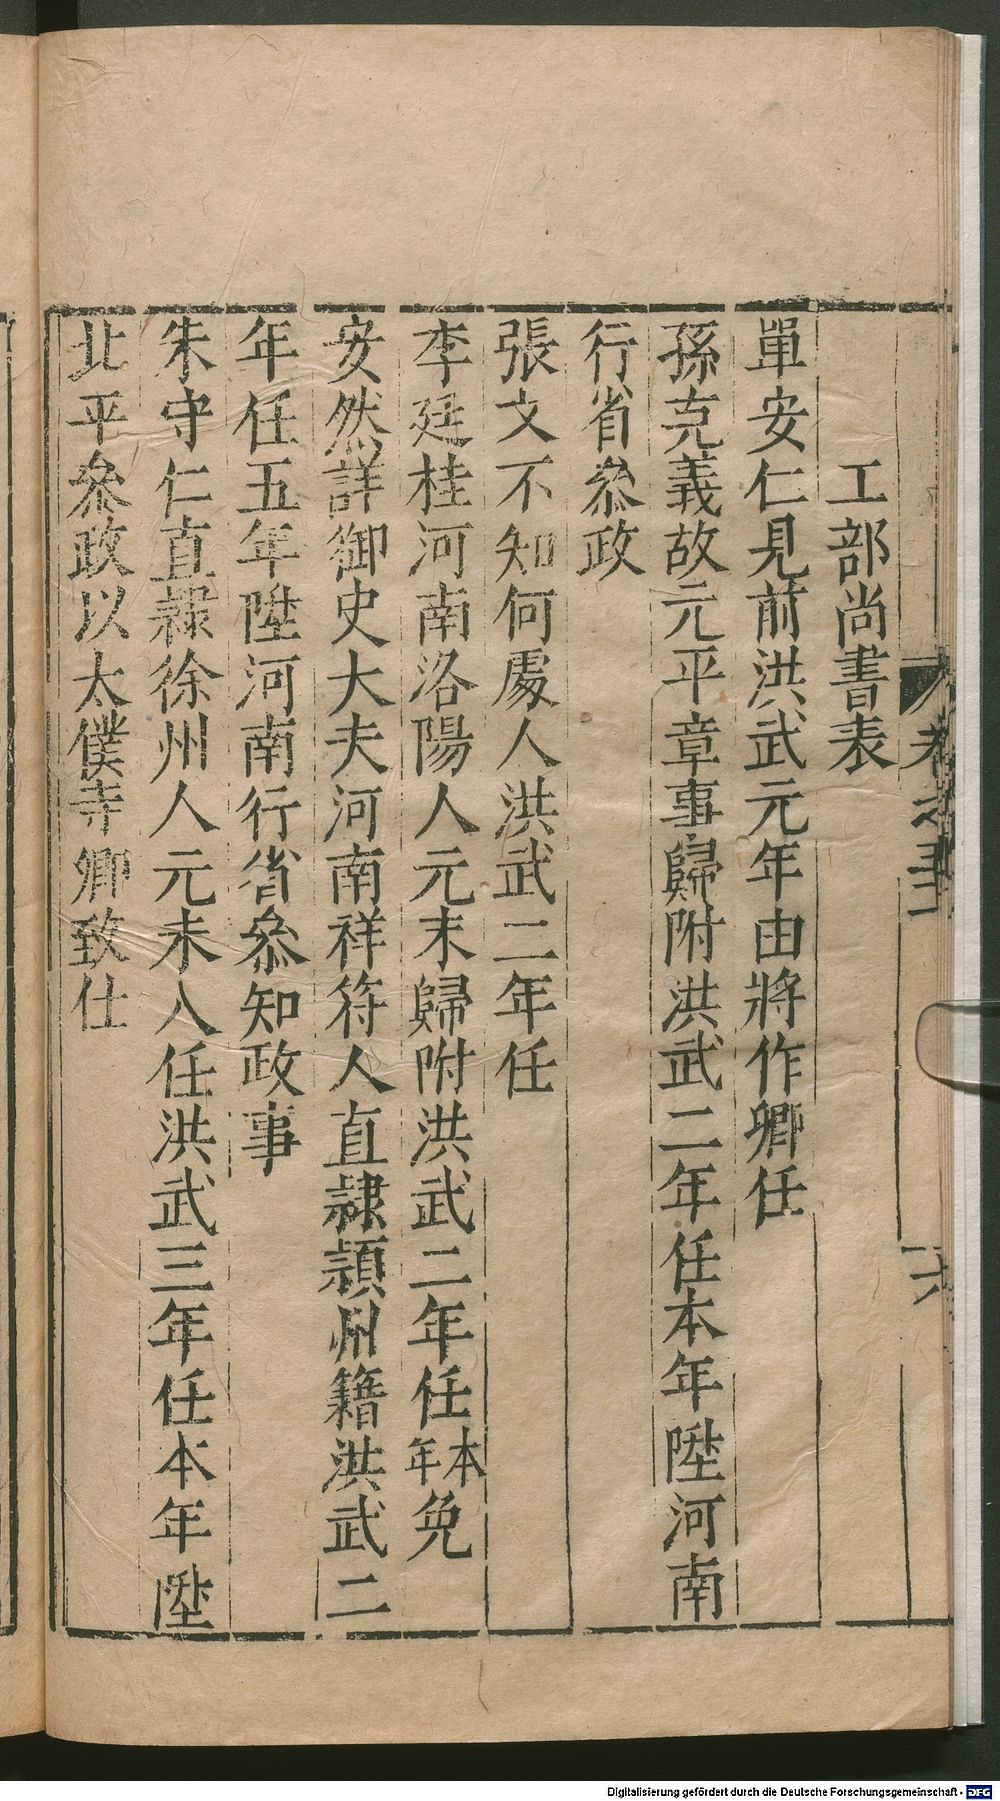 工部尚書表
單安仁見前洪武元年由將作卿任
孫克義故元平章事歸附洪武二年任本年陞河南
行省叅政
張文不知何處人洪武二年任
李廷桂河南洛陽人元末歸附洪武二年任本年免
安然詳御史大夫河南祥符人直隷頴州籍洪武二
年任五年陞河南行省叅知政事
朱守仁直隷徐州人元末入任洪武三年任本年陞
北平叅政以太僕寺卿致仕
Digitalisierung gefördert durch die Deutsche Forschungsgemeinschaft - DFG